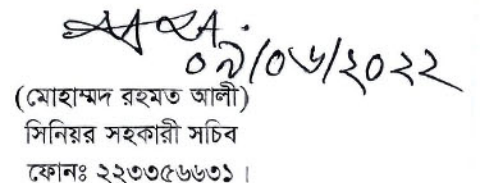 ০৯/০৬/২০২২
(মোহাম্মদ রহমত আলী)
সিনিয়র সহকারী সচিব
ফোনঃ ২২৩৩৫৬৬৩১।